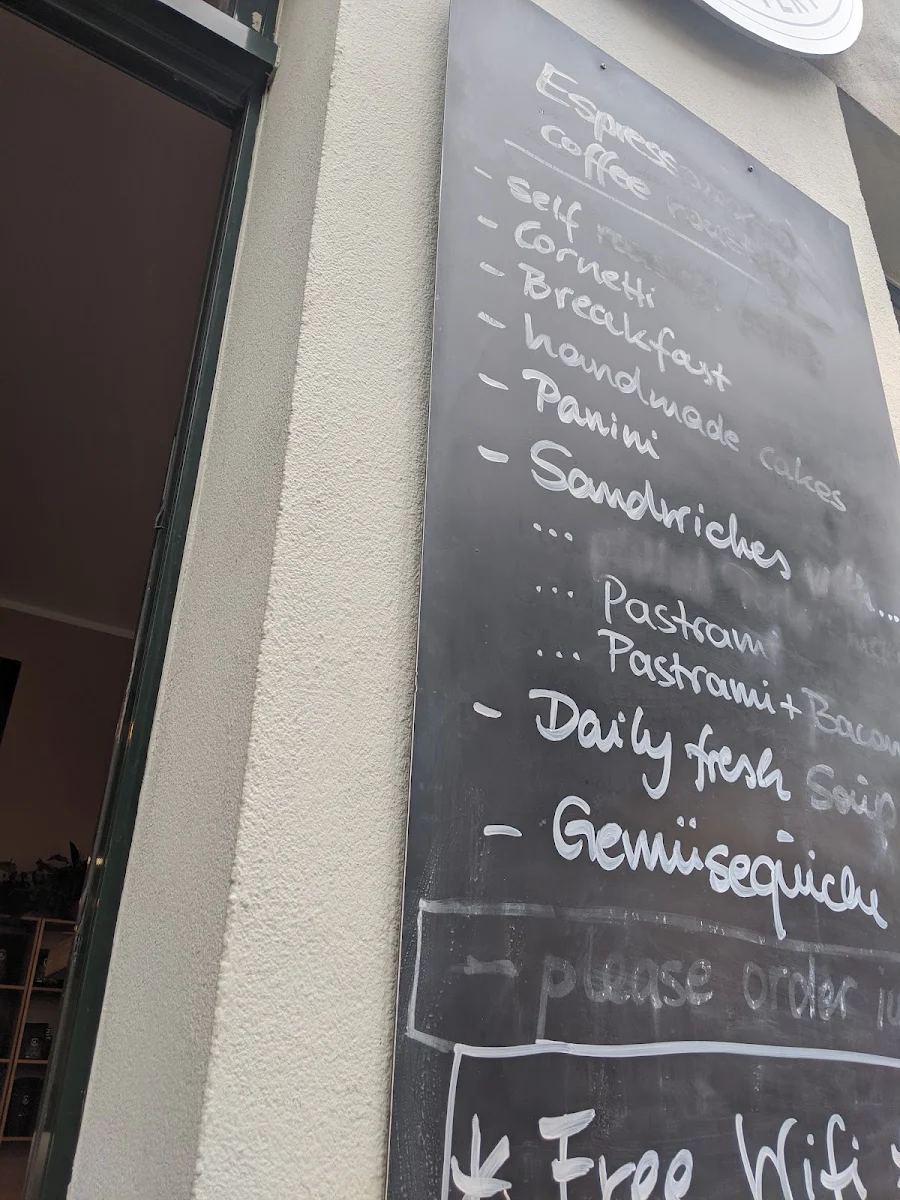 Espresso
coffee roast
- self
- Cornetti
- Breakfast
- handmade cakes
- Panini
- Sandwiches with...
...
... Pastrami
... Pastrami + Bacon
- Daily fresh Soup
- Gemüsequiche
- please order
* Free Wifi